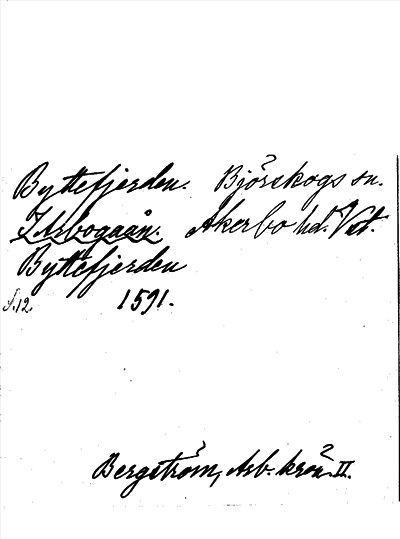 Byttefjerden. Björskogs sn.
I Arbogaån. Akerbo hd. Vst.
Byttefjerden
s. 12. 1591.
Bergström, Arb. krön. II.